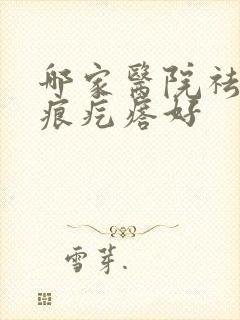 哪家醫院祛
痕疙瘩好
雪芽.